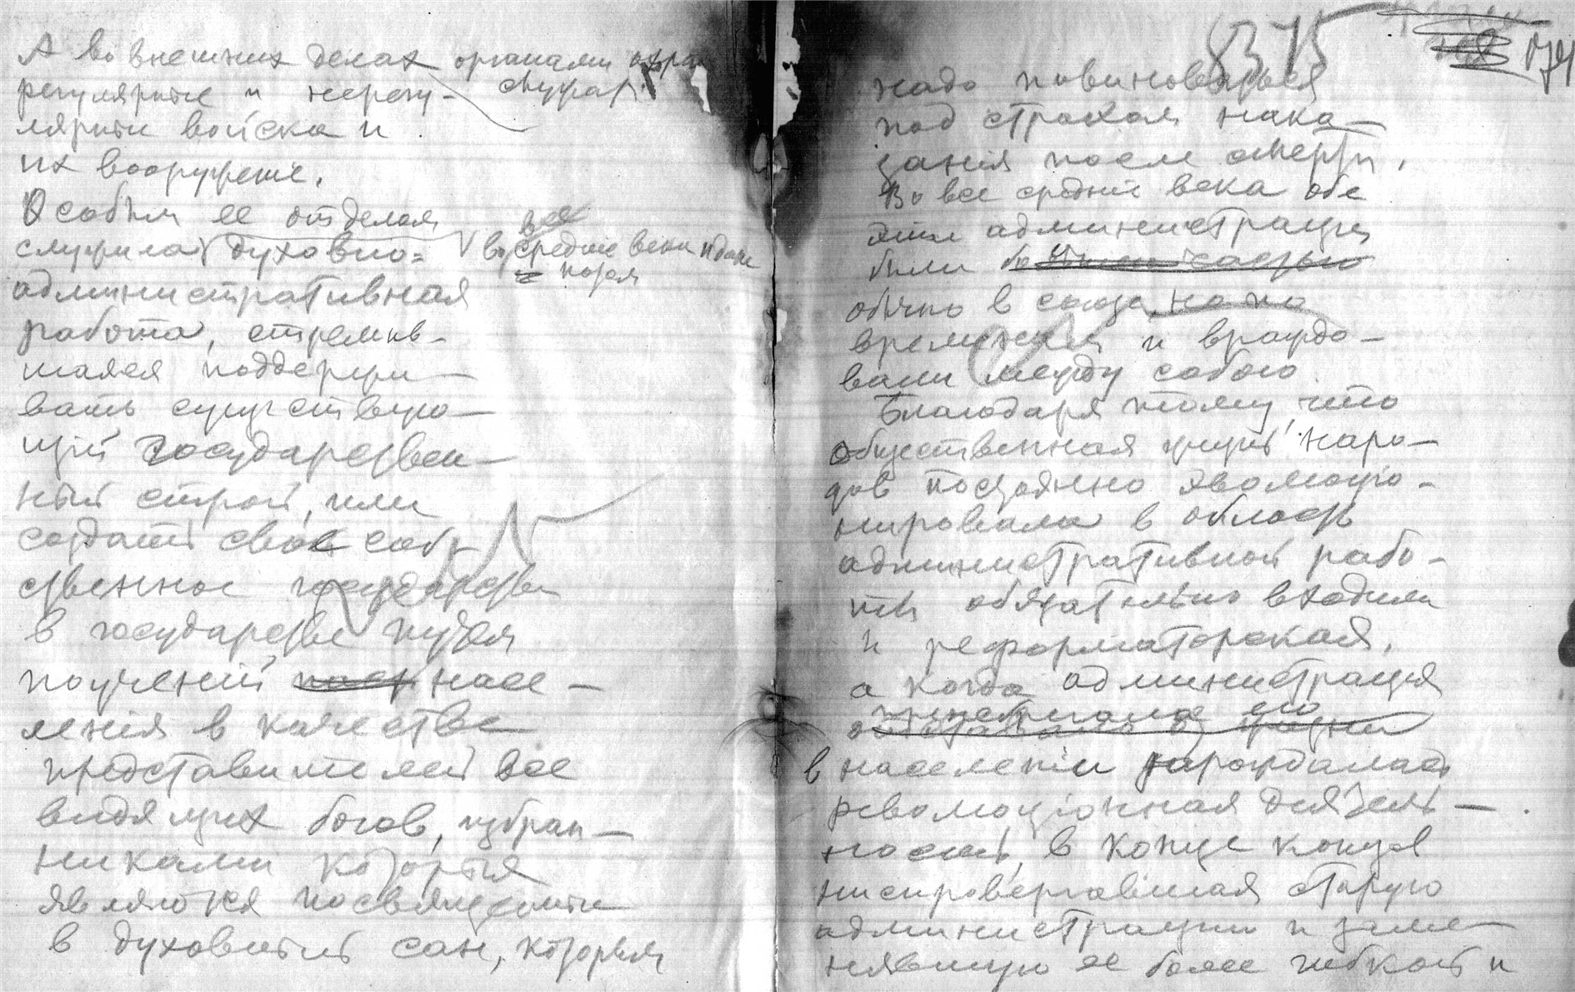 А во внешних делах органами охра
регулярные и нерегу-
служат
лярные войска и
их вооружение.
Особым ее отделом
служила духовно-
все
во средние века и даже
позже
административная
работа, стремив-
шаяся поддержи-
вать существую-
щий государствен-
ный строй, или
создать свое соб-
ственное государство
в государстве путем
поучений насе-
ления в качестве
представителей все
видящих богов, избран-
никами которых
являются посвященные
в духовный сан, которым
8375
надо повиноваться
под страхом нака-
занія после смерти.
Во все средние века обе
эти администрации
были
обычно в союзе, но по
временам и враждо-
вали между собою.
Благодаря тому, что
общественная жизнь наро-
дов постоянно эволюцио-
нировала в область
административной рабо-
ты обязательно входила
и реформаторская,
а когда администрация
в населении зарождалась
революционная деятель-
ность, в конце концов
ниспровергавшая старую
администрацию и заме-
нявшую ее более гибкой и